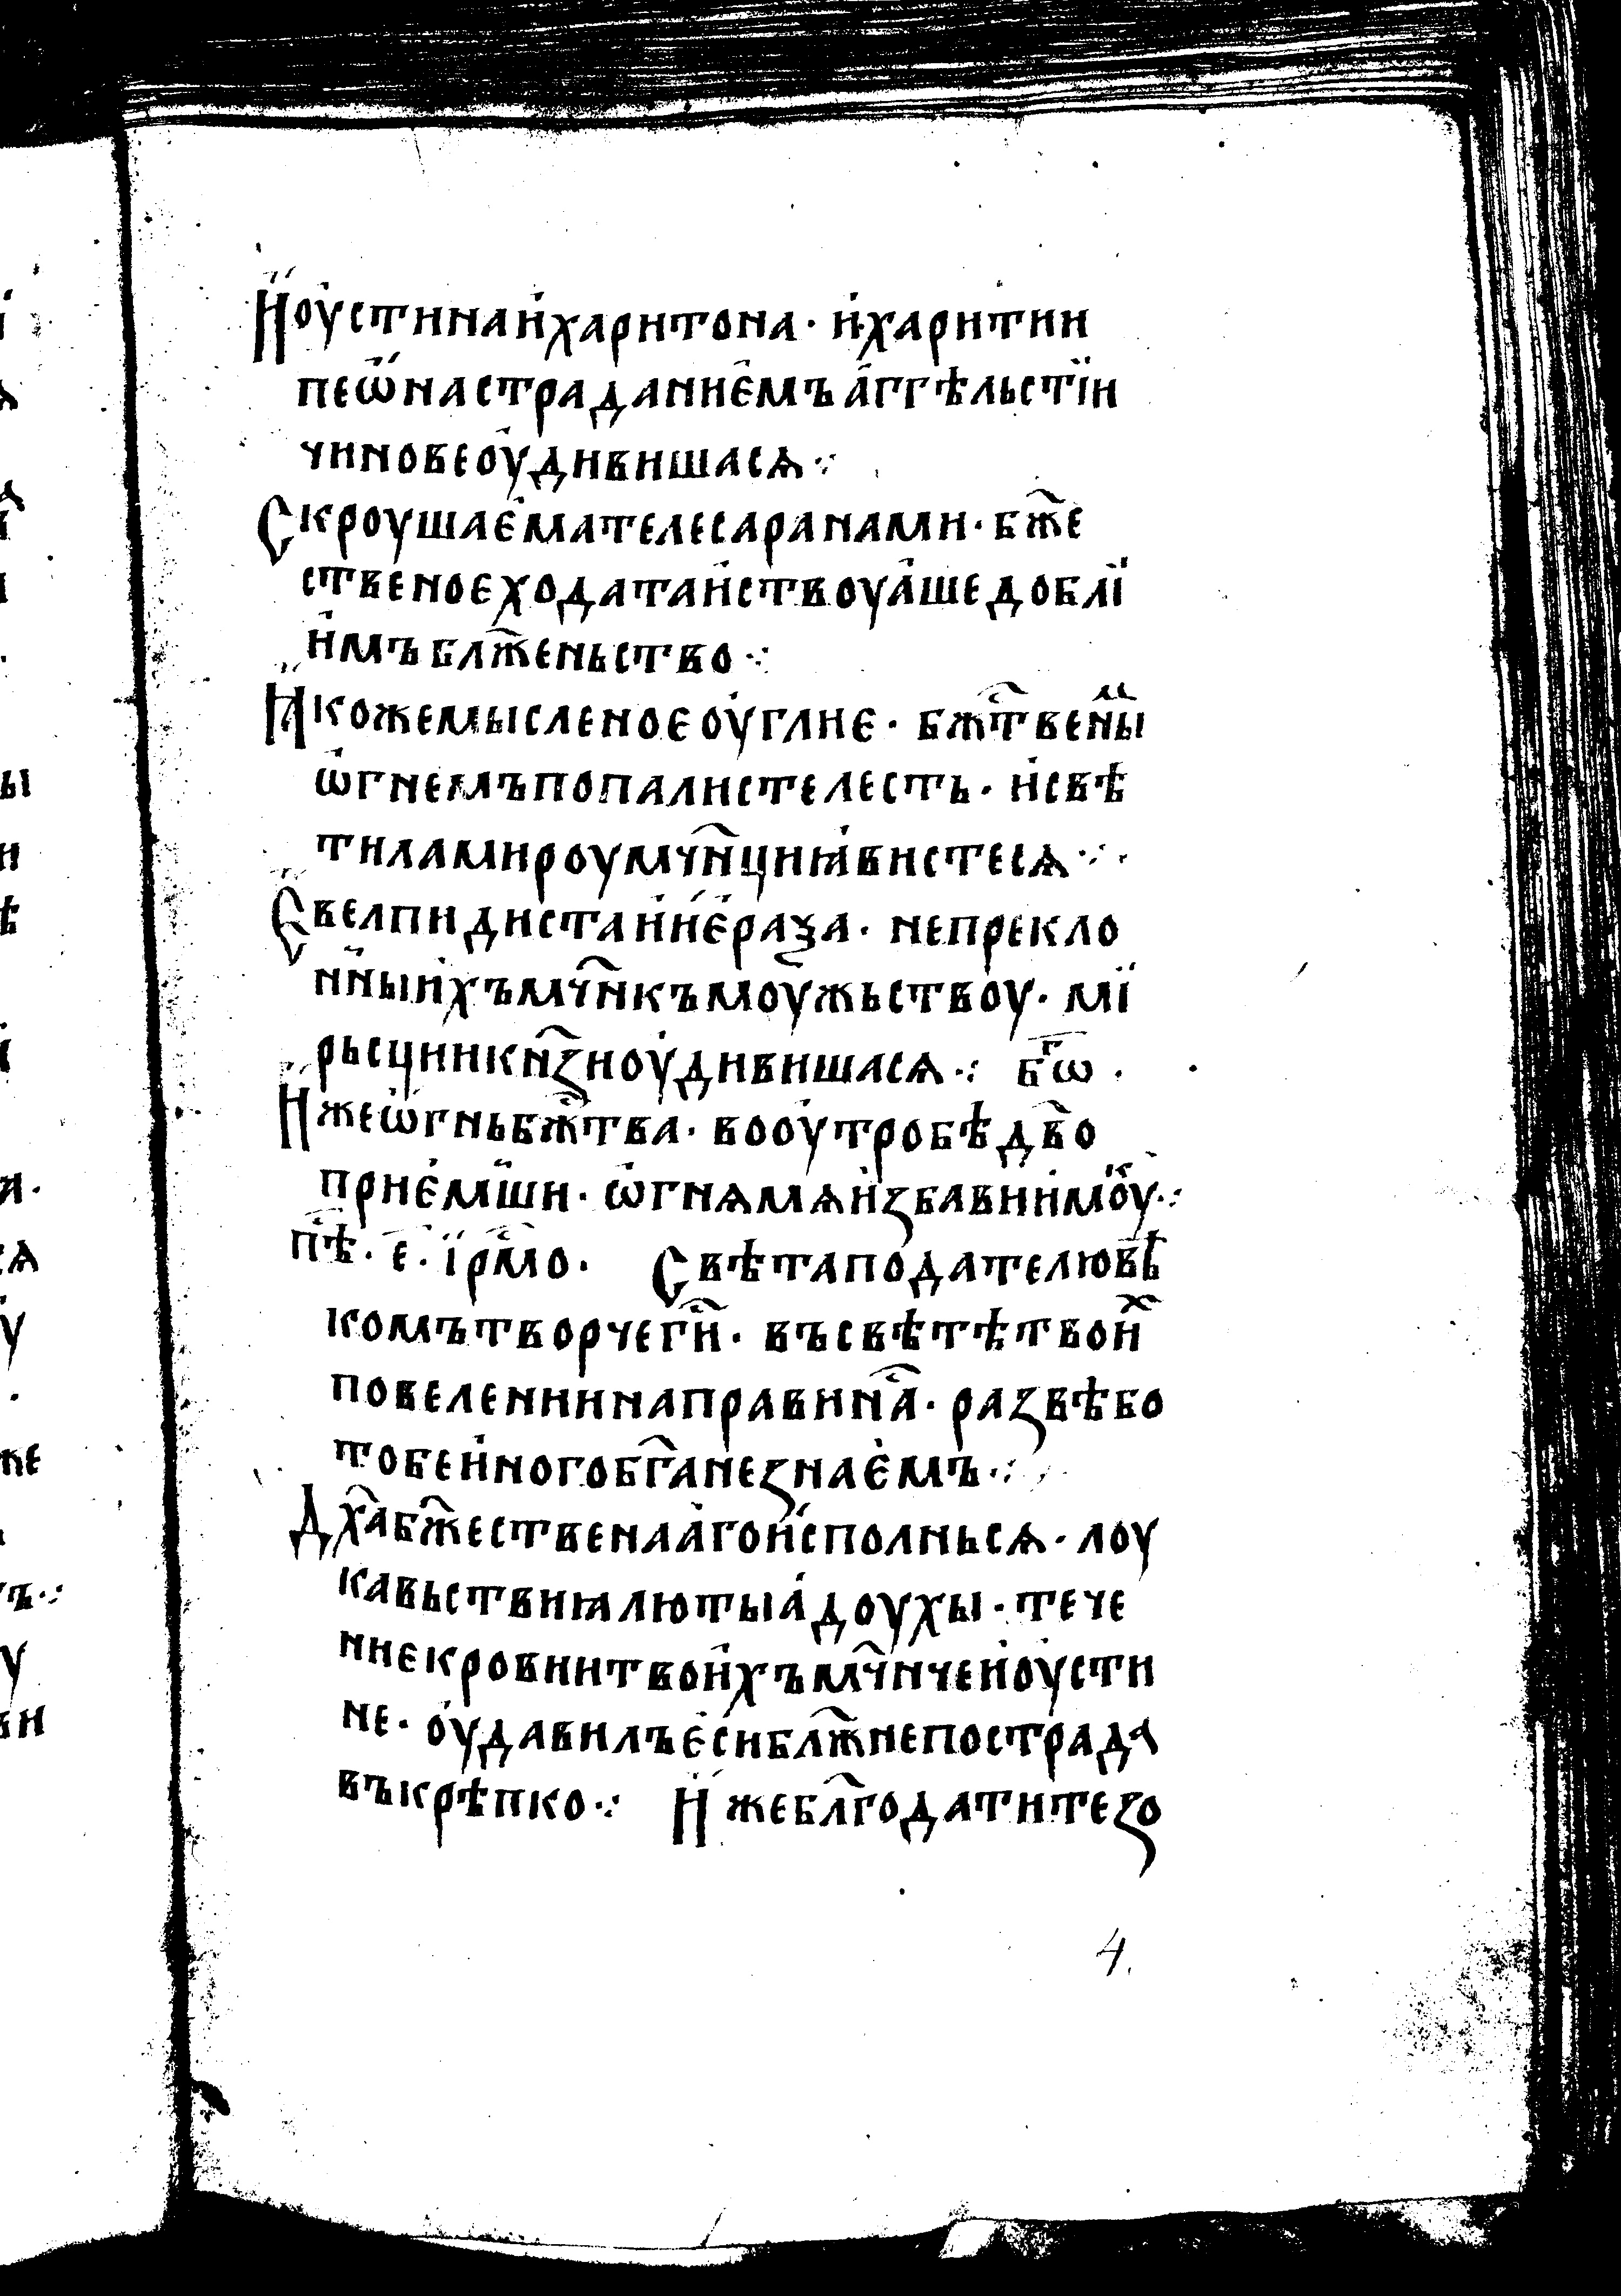 И҆оу҆стина и҆ харитона · и҆ харитии
пеѡ҆на страданиє҆мъ а҆ггѣльстїи
чинове оу҆дивишасѧ ⁘
Скроушає҆ма телеса ранами · бж҃е
ственоє ходатаи҆ствоуа҆ше доблї
и҆мъ блж҃еньство ⁘
Ꙗ҆коже мысленоє оу҆глиє · бжⷭ҇твены
ѡ҆гнемъ попалисте лесть · и҆ свѣ
тила мироу мч҃нци ꙗ҆вистесѧ ⁘
Є҆велпидиста и҆ и҆є҆раѯа · непрекло
нныи҆хъ мч҃нкъ моу҆жьствоу · мї
рьсции кнѕ҃и оу҆дивишасѧ ⁘ бг҃ѡ ·
И҆же ѡ҆гнь бжⷭ҇тва · во оу҆тробѣ дв҃о
приє҆мши · ѡ҆гнѧ мѧ и҆ꙁбави и҆ моⷦ҇у ⁘
пѣⷭ҇ · е҃ · ї҆рмоⷭ҇ · Свѣта подателю вѣ
комъ творче гиⷭ҇ · въ свѣтѣ твоиⷯ
повелении направи наⷭ҇ · раꙁвѣ бо
тобе и҆ного бг҃а не ꙁнає҆мъ ⁘
Дх҃а бж҃ественаа҆го и҆сполньсѧ · лоу
кавьствиꙗ лютыа҆ доухы · тече
ние крови и твои҆хъ мч҃нче и҆оу҆сти
не · оу҆давилъ є҆си блж҃не пострада
въ крѣпко ⁘ И҆же блг҃одати теꙁо
4.